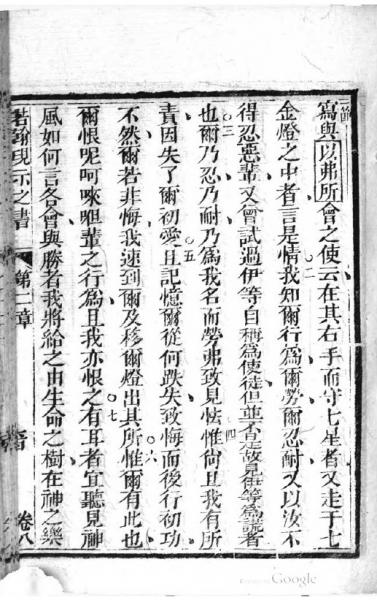 寫與以弗所會之使云在其右手而守七星者又走于七
金燈之中者言是情我知爾行爲爾勞爾忍耐又以汝不
得忍惡輩又曾試過伊等自稱爲使徒但並不是故見伊等爲謊者
也爾乃忍乃耐乃爲我名而勞弗致見怯惟尙且我有所
責因失了爾初愛且記憶爾從何跌失致悔而後行初功
不然爾若非悔我速到爾及移爾燈出其所惟爾有此也
爾恨呢呵唻㫜輩之行爲且我亦恨之有耳者宜聽見神
風如何言各會與勝者我將給之由生命之樹在神之樂
若翰現示之書
第二章
卷八
Google